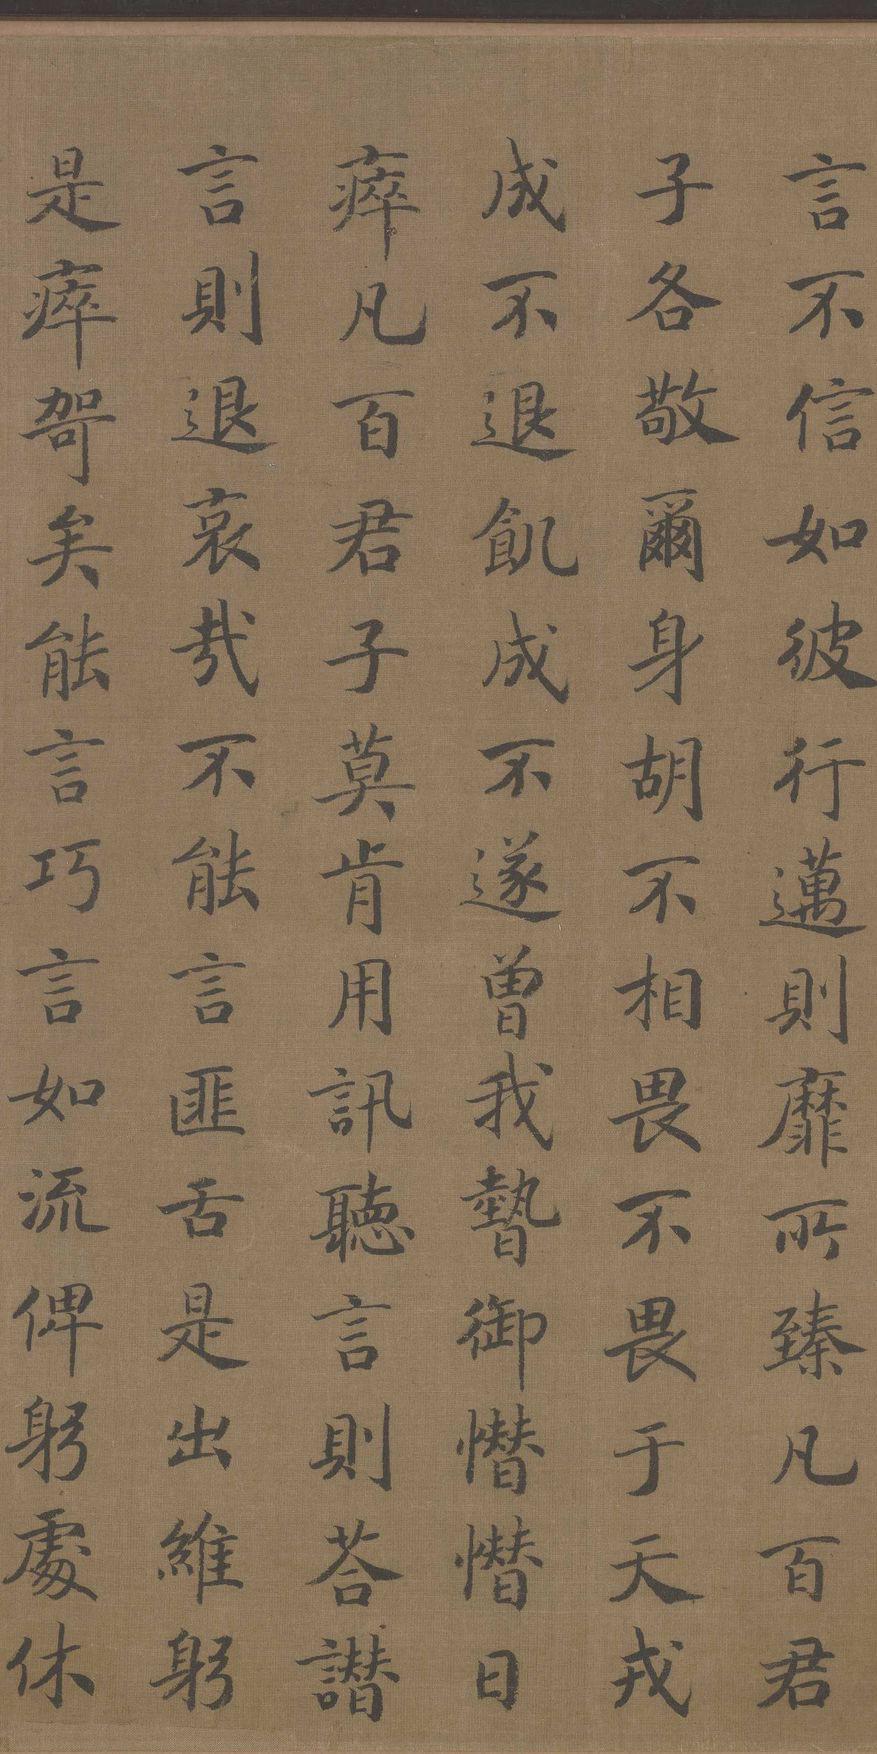 言不信如彼行邁則靡所臻凡百君
子各敬爾身胡不相畏不畏于天戎
成不退飢成不遂曾我暬御憯憯日
瘁凡百君子莫肯用訊聽言則荅譖
言則退哀哉不能言匪舌是出維躬
是瘁哿矣能言巧言如流俾躬處休